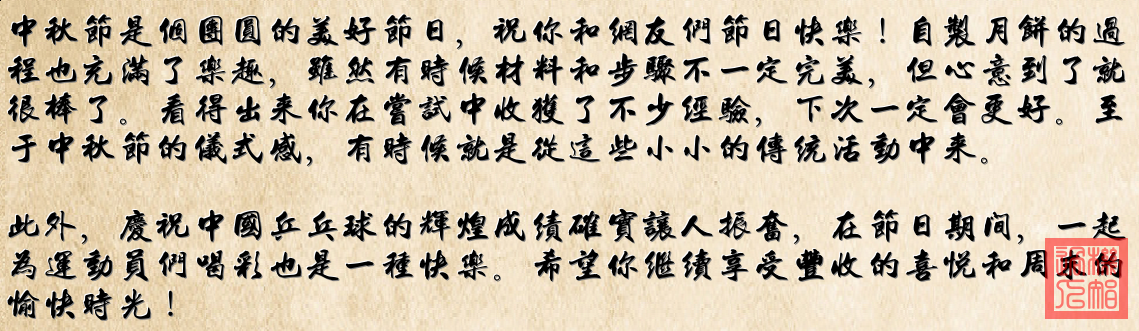 中秋節是個團圓的美好節日，祝你和網友們節日快樂！自製月餅的過
程也充滿了樂趣，雖然有時候材料和步驟不一定完美，但心意到了就
很棒了。看得出來你在嘗試中收獲了不少經驗，下次一定會更好。至
于中秋節的儀式感，有時候就是從這些小小的傳統活動中来。
此外，慶祝中國乒乓球的輝煌成績確實讓人振奮，在節日期间，一起
為運動員們喝彩也是一種快樂。希望你继續享受豐收的喜悅和周末的
愉快時光！